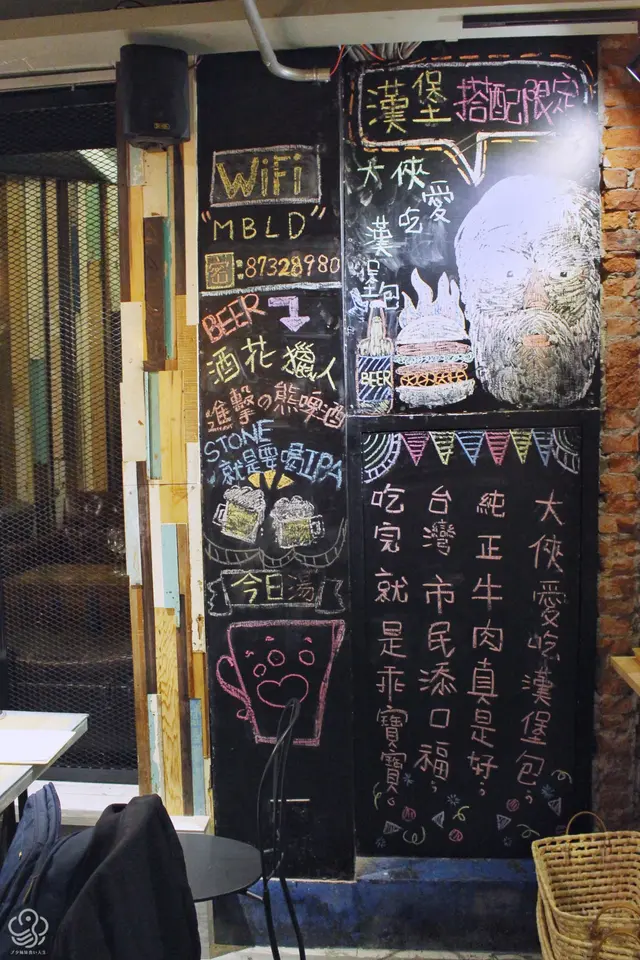 WiFi
"MBLD"
密:87328980
BEER
酒花獵人
進擊の熊啤酒
STONE
就是要喝IPA
今日湯
漢堡 搭配限定
大俠愛
吃
漢堡包
BEER
大俠愛吃漢堡包
純正牛肉真是好
台灣市民添口福
吃完就是乖寶寶